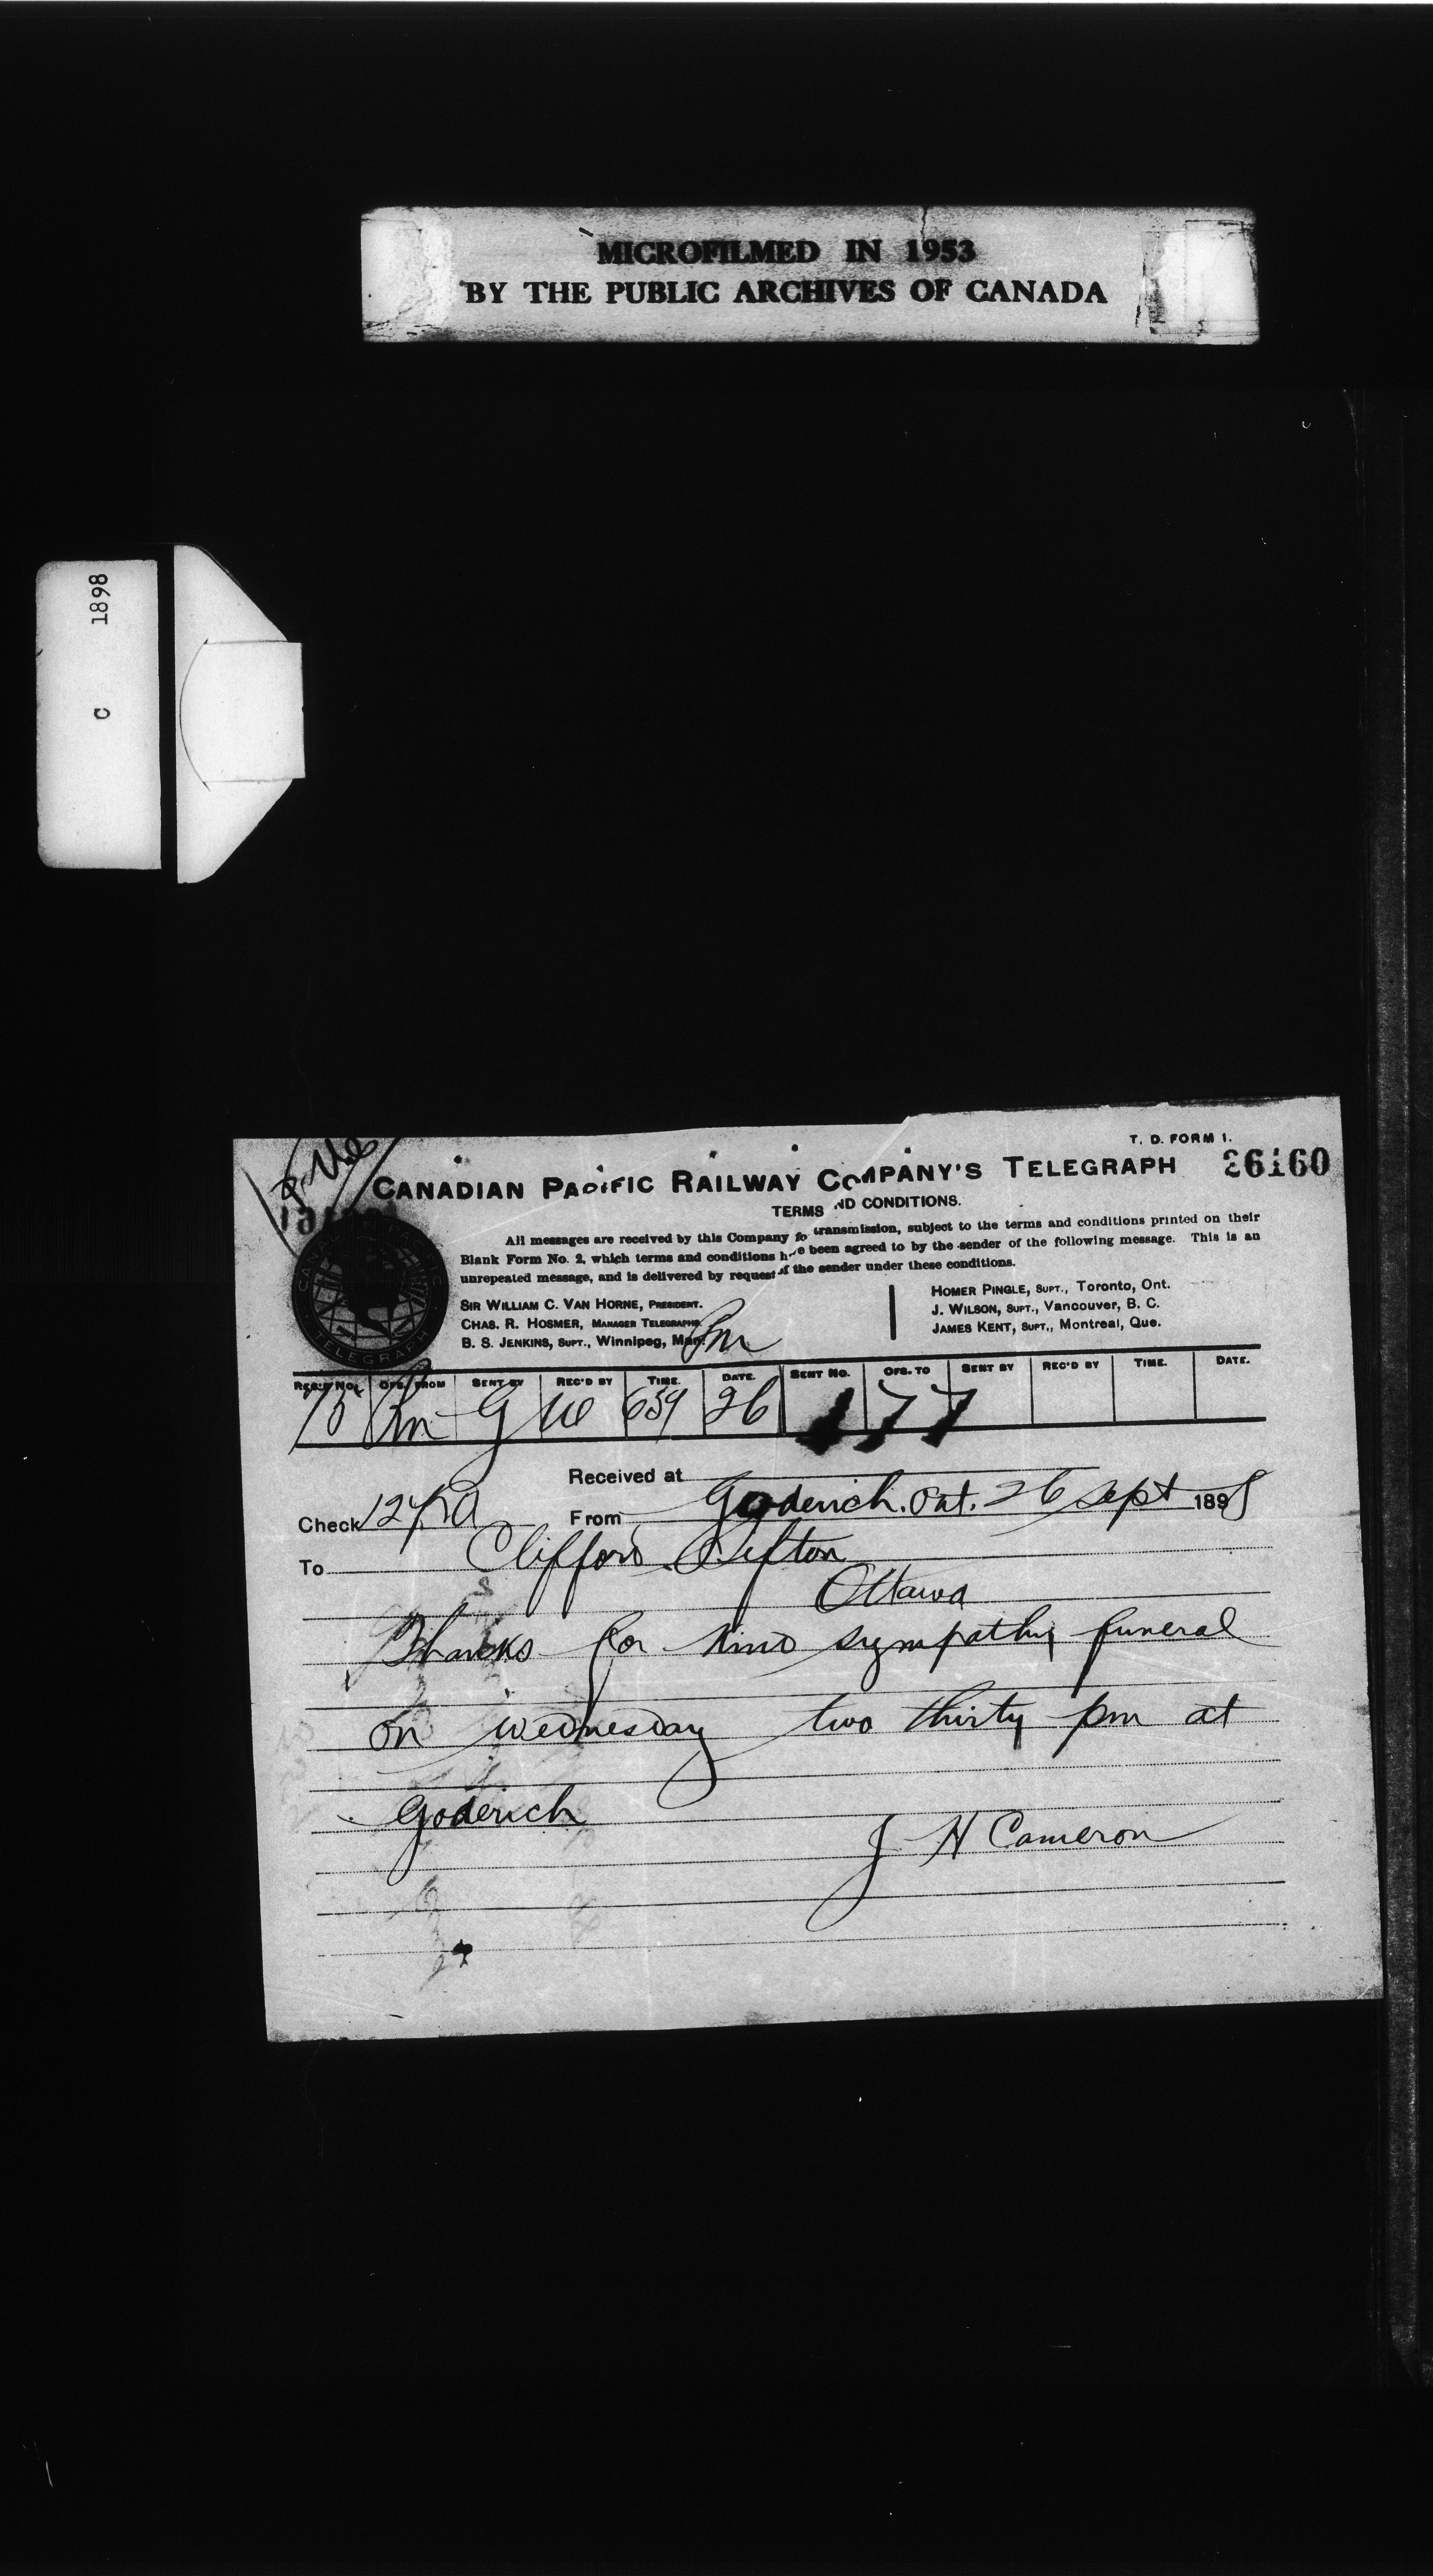 MICROFILMED IN 1953
BY THE PUBLIC ARCHIVES OF CANADA
C 1898
T. D. FORM 1.
26160
CANADIAN PACIFIC RAILWAY COMPANY'S TELEGRAPH
TERMS AND CONDITIONS.
All messages are received by this Company for transmission, subject to the terms and conditions printed on their
Blank Form No. 2, which terms and conditions have been agreed to by the sender of the following message. This is an
unrepeated message, and is delivered by request of the sender under these conditions.
SIR WILLIAM C. VAN HORNE, PRESIDENT.
CHAS. R. HOSMER, MANAGER TELEGRAPHS.
B. S. JENKINS, SUPT., Winnipeg, Man.
HOMER PINGLE, SUPT., Toronto, Ont.
J. WILSON, SUPT., Vancouver, B. C.
JAMES KENT, SUPT., Montreal, Que.
TELEGRAPH
REC'D NO. OFS. FROM SENT BY REC'D BY TIME. DATE. SENT NO. OFS. TO SENT BY REC'D BY TIME. DATE.
G 659 26 177
Received at
Check
From Goderich. Ont. 26 Sept 1898
To Clifford Sifton
Ottawa
Thanks for kind sympathy funeral
on wednesday two thirty pm at
Goderich
J H Cameron